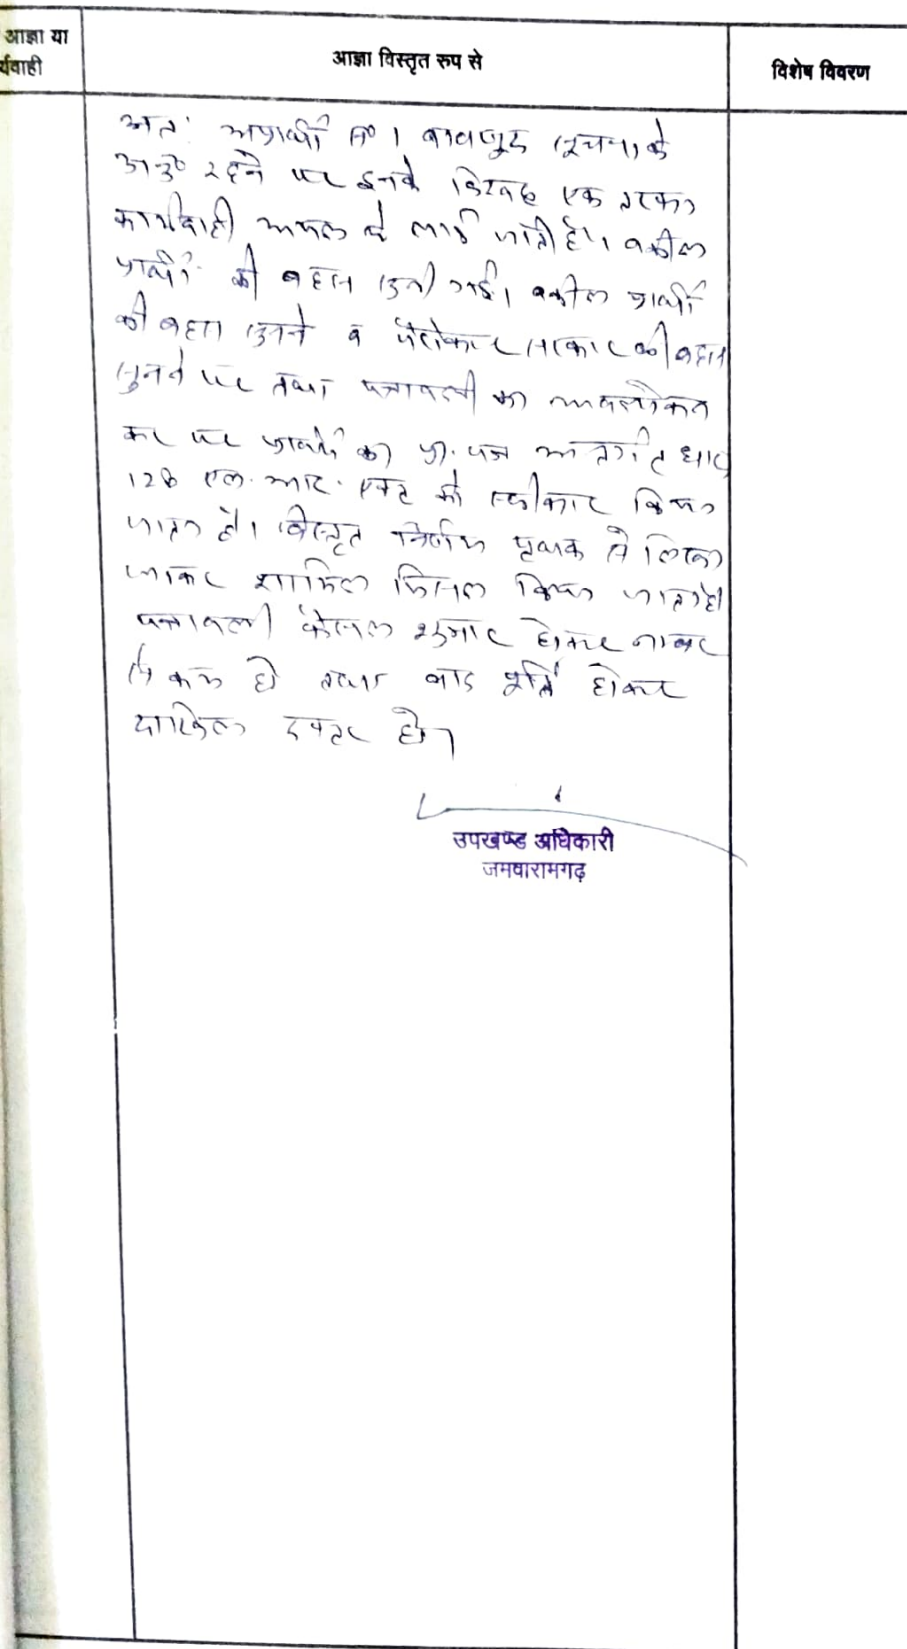 आज्ञा या
र्यवाही
आज्ञा विस्तृत रुप से
विशेष विवरण
अतः अप्रार्थी सं० 1 बावजूद सूचना के
अनु० रहने पर इनके विरूद्ध एक तरफा
कार्यवाही अमल में लाई जाती है। वकील
प्रार्थी की बहस सुनी गई। वकील प्रार्थी
की बहस सुनने व पैरोकार सरकार की बहस
सुनने पर तथा पत्रावली का अवलोकन
कर पर प्रार्थी का प्रा. पत्र अन्तर्गत धारा
128 एल. आर. एक्ट को स्वीकार किया
जाता है। विस्तृत निर्णय पृथक से लिखा
जाकर शामिल मिसल किया जाता है।
पत्रावली फैसल शुमार होकर नम्बर
से कम हो तथा बाद पूर्ति होकर
दाखिल दफ्तर हो।
उपखण्ड अधिकारी
जमवारामगढ़